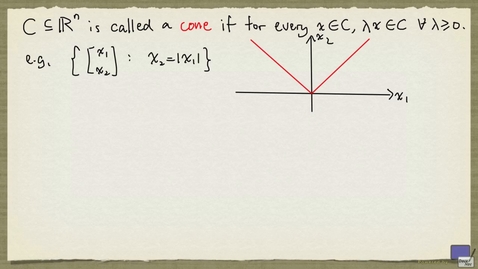 C ⊆ ℝⁿ is called a cone if for every x ∈ C, λx ∈ C ∀ λ ≥ 0.
e.g. { [x₁ x₂] : x₂ = |x₁| }
x₂
x₁